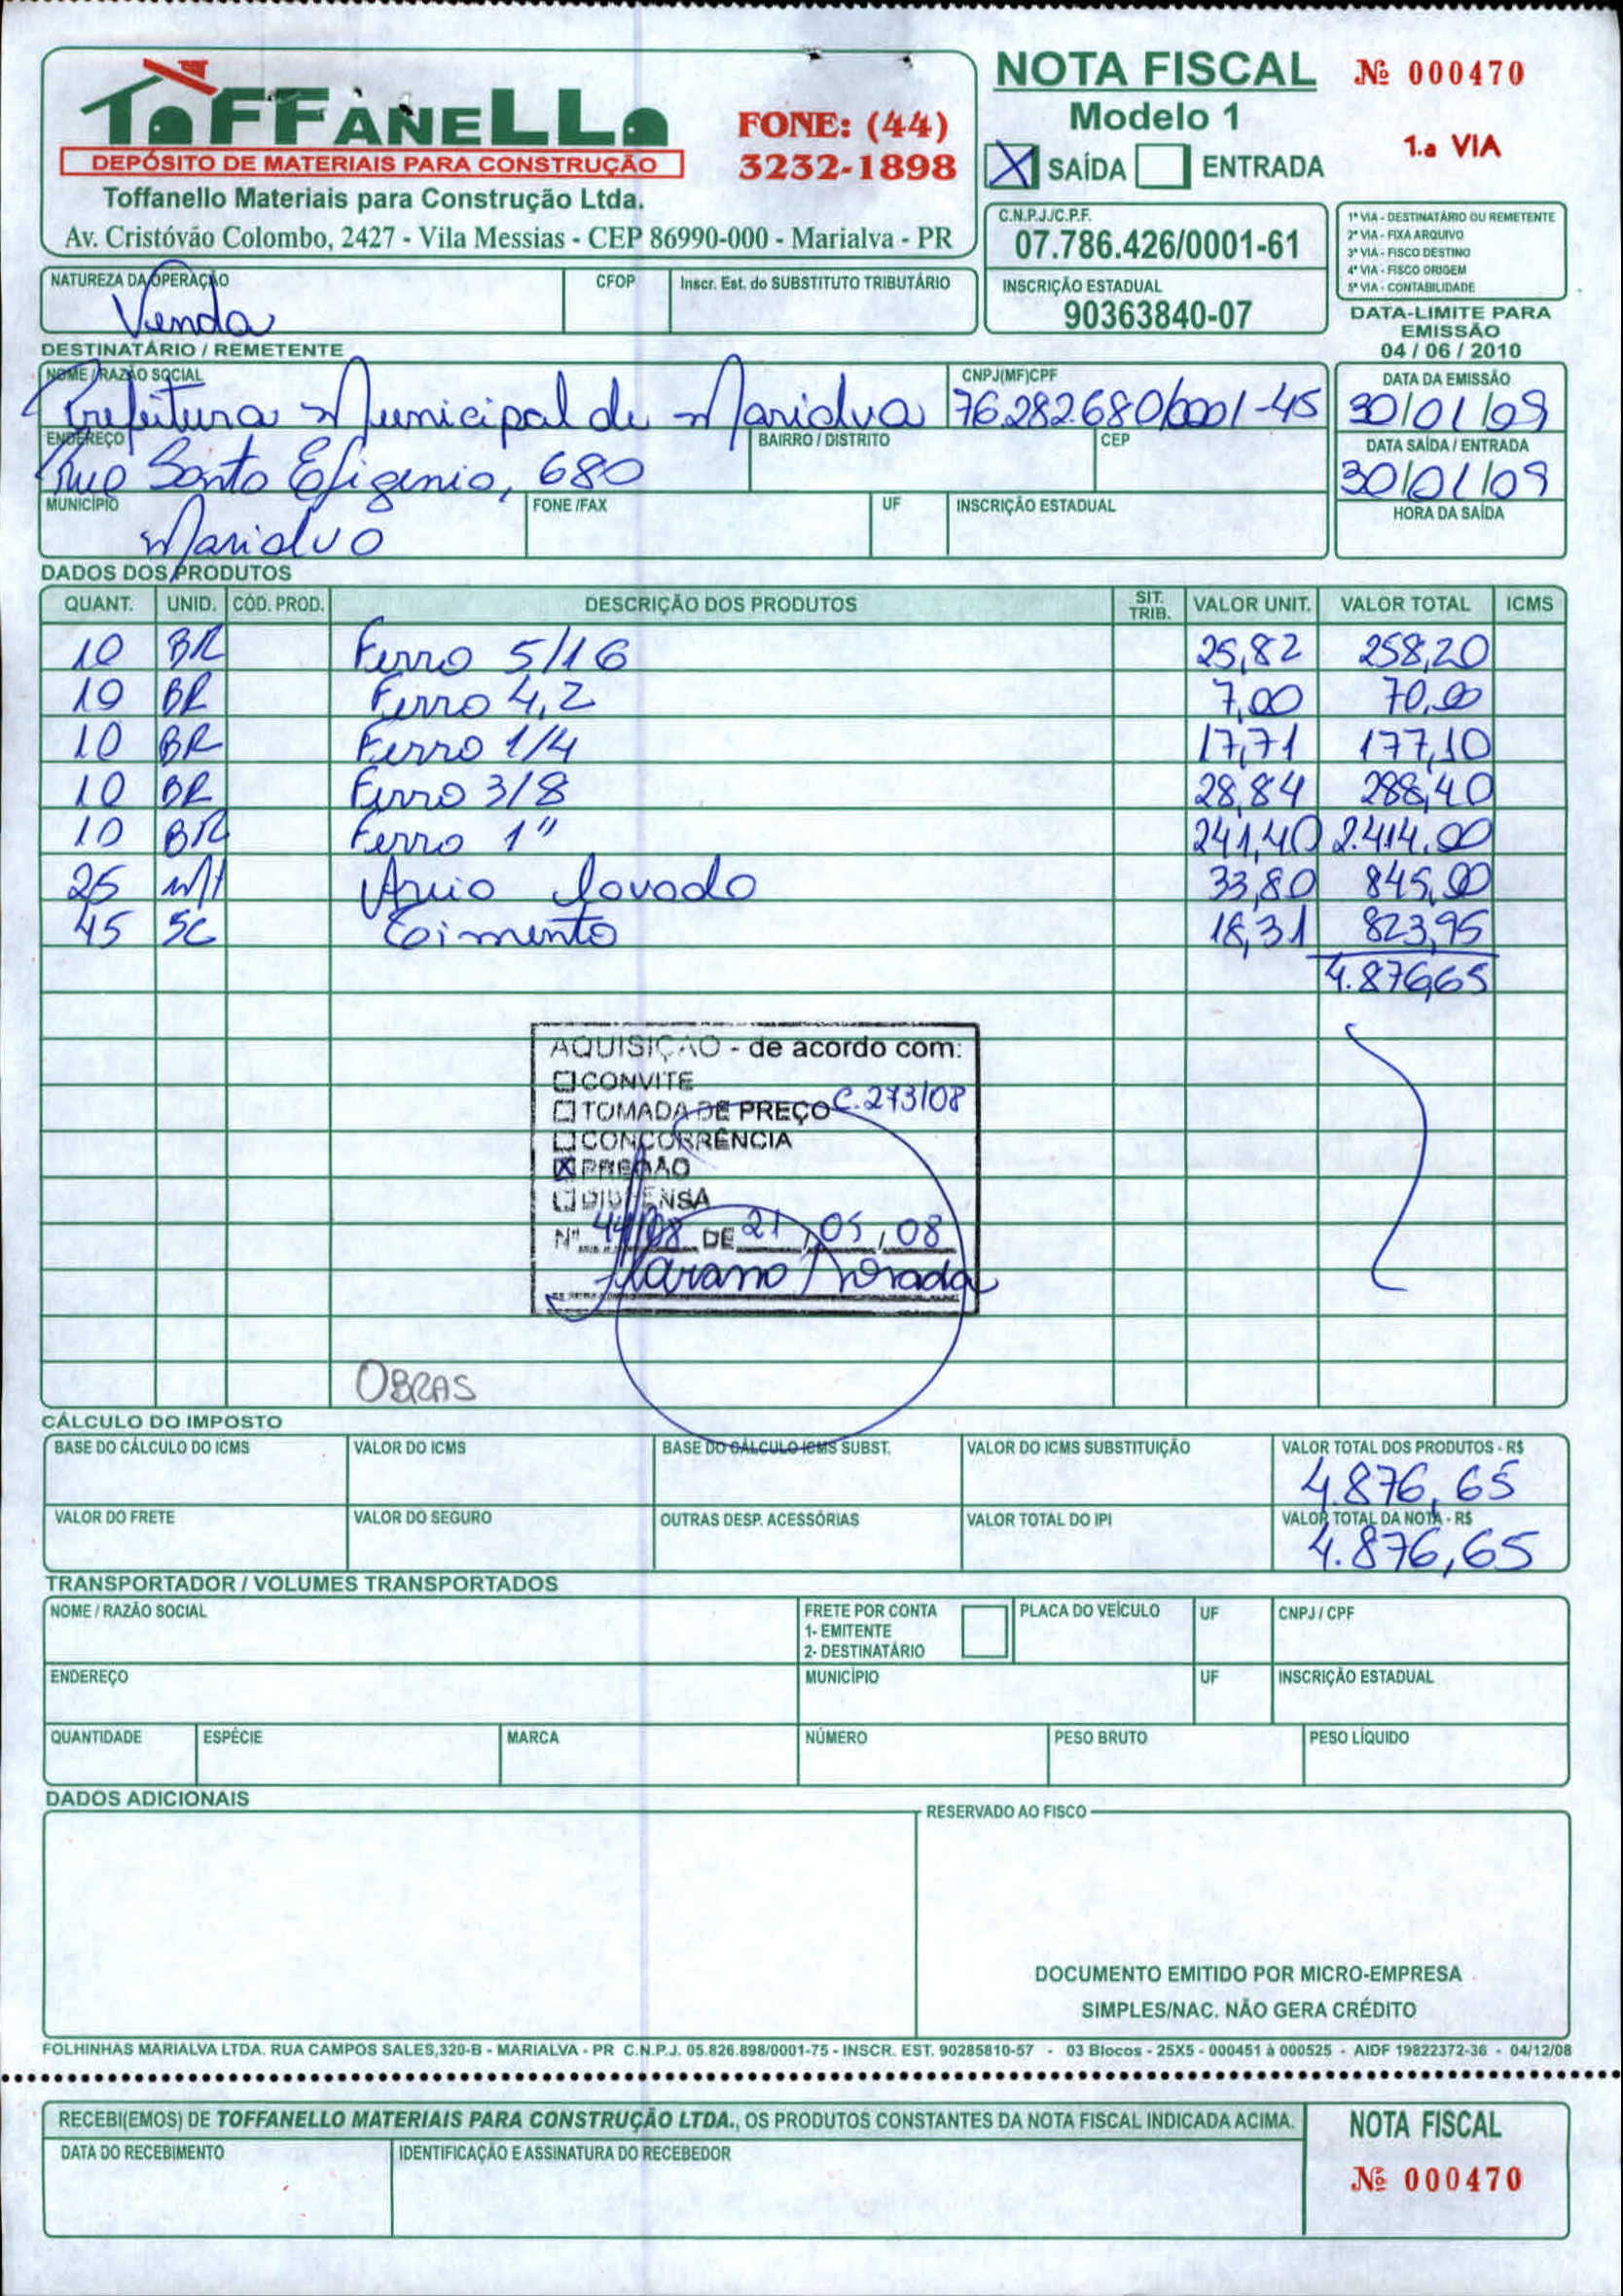 ToFFANELLo
DEPÓSITO DE MATERIAIS PARA CONSTRUÇÃO
Toffanello Materiais para Construção Ltda.
Av. Cristóvão Colombo, 2427 - Vila Messias - CEP 86990-000 - Marialva - PR
FONE: (44)
3232-1898
NOTA FISCAL
Modelo 1
X SAÍDA ENTRADA
Nº 000470
1.a VIA
C.N.P.J./C.P.F.
07.786.426/0001-61
INSCRIÇÃO ESTADUAL
90363840-07
1ª VIA - DESTINATÁRIO OU REMETENTE
2ª VIA - FIXA ARQUIVO
3ª VIA - FISCO DESTINO
4ª VIA - FISCO ORIGEM
5ª VIA - CONTABILIDADE
DATA-LIMITE PARA
EMISSÃO
04 / 06 / 2010
NATUREZA DA OPERAÇÃO CFOP Inscr. Est. do SUBSTITUTO TRIBUTÁRIO
Venda
DESTINATÁRIO / REMETENTE
NOME / RAZÃO SOCIAL CNPJ(MF)CPF DATA DA EMISSÃO
Prefeitura Municipal de Marialva 76.282.680/0001-45 30/01/09
ENDEREÇO BAIRRO / DISTRITO CEP DATA SAÍDA / ENTRADA
Rua Santa Efigenia, 680 30/01/09
MUNICÍPIO FONE /FAX UF INSCRIÇÃO ESTADUAL HORA DA SAÍDA
Marialva
DADOS DOS PRODUTOS
QUANT. UNID. CÓD. PROD. DESCRIÇÃO DOS PRODUTOS SIT. TRIB. VALOR UNIT. VALOR TOTAL ICMS
10 BR Ferro 5/16 25,82 258,20
10 BR Ferro 4,2 7,00 70,00
10 BR Ferro 1/4 17,71 177,10
10 BR Ferro 3/8 28,84 288,40
10 BR Ferro 1" 241,40 2.414,00
25 Areia lavada 33,80 845,00
45 SC Cimento 18,31 823,95
4.876,65
AQUISIÇÃO - de acordo com:
CONVITE
TOMADA DE PREÇO C.273/08
CONCORRÊNCIA
X PREGÃO
DISPENSA
Nº 44/08 DE 21, 05, 08
OBRAS
CÁLCULO DO IMPOSTO
BASE DO CÁLCULO DO ICMS VALOR DO ICMS BASE DO CÁLCULO ICMS SUBST. VALOR DO ICMS SUBSTITUIÇÃO VALOR TOTAL DOS PRODUTOS - R$
4.876,65
VALOR DO FRETE VALOR DO SEGURO OUTRAS DESP. ACESSÓRIAS VALOR TOTAL DO IPI VALOR TOTAL DA NOTA - R$
4.876,65
TRANSPORTADOR / VOLUMES TRANSPORTADOS
NOME / RAZÃO SOCIAL FRETE POR CONTA PLACA DO VEÍCULO UF CNPJ / CPF
1- EMITENTE
2- DESTINATÁRIO
ENDEREÇO MUNICÍPIO UF INSCRIÇÃO ESTADUAL
QUANTIDADE ESPÉCIE MARCA NÚMERO PESO BRUTO PESO LÍQUIDO
DADOS ADICIONAIS
RESERVADO AO FISCO
DOCUMENTO EMITIDO POR MICRO-EMPRESA
SIMPLES/NAC. NÃO GERA CRÉDITO
FOLHINHAS MARIALVA LTDA. RUA CAMPOS SALES,320-B - MARIALVA - PR C.N.P.J. 05.826.898/0001-75 - INSCR. EST. 90285810-57 - 03 Blocos - 25X5 - 000451 à 000525 - AIDF 19822372-36 - 04/12/08
RECEBI(EMOS) DE TOFFANELLO MATERIAIS PARA CONSTRUÇÃO LTDA., OS PRODUTOS CONSTANTES DA NOTA FISCAL INDICADA ACIMA.
DATA DO RECEBIMENTO IDENTIFICAÇÃO E ASSINATURA DO RECEBEDOR
NOTA FISCAL
Nº 000470